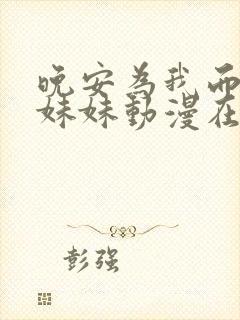 晚安為我而
妹妹動漫在
彭强